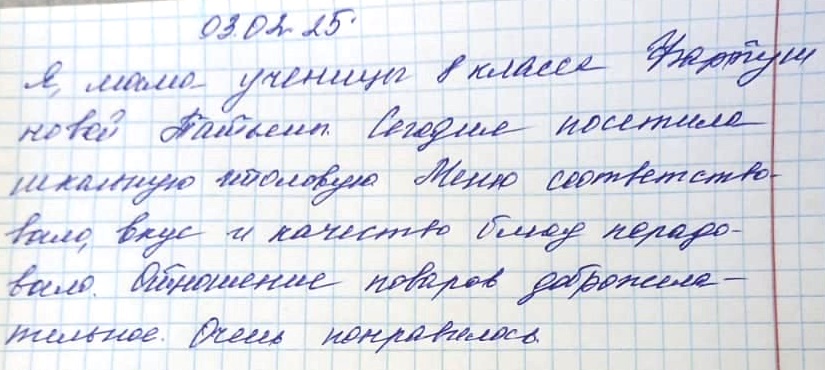 03.02.25.
Я, мама ученицы 8 класса Картуш
новой Татьяны. Сегодня посетила
школьную столовую. Меню соответство-
вало, вкус и качество блюд порадо-
вало. Отношение поваров доброжела-
тельное. Очень понравилось.